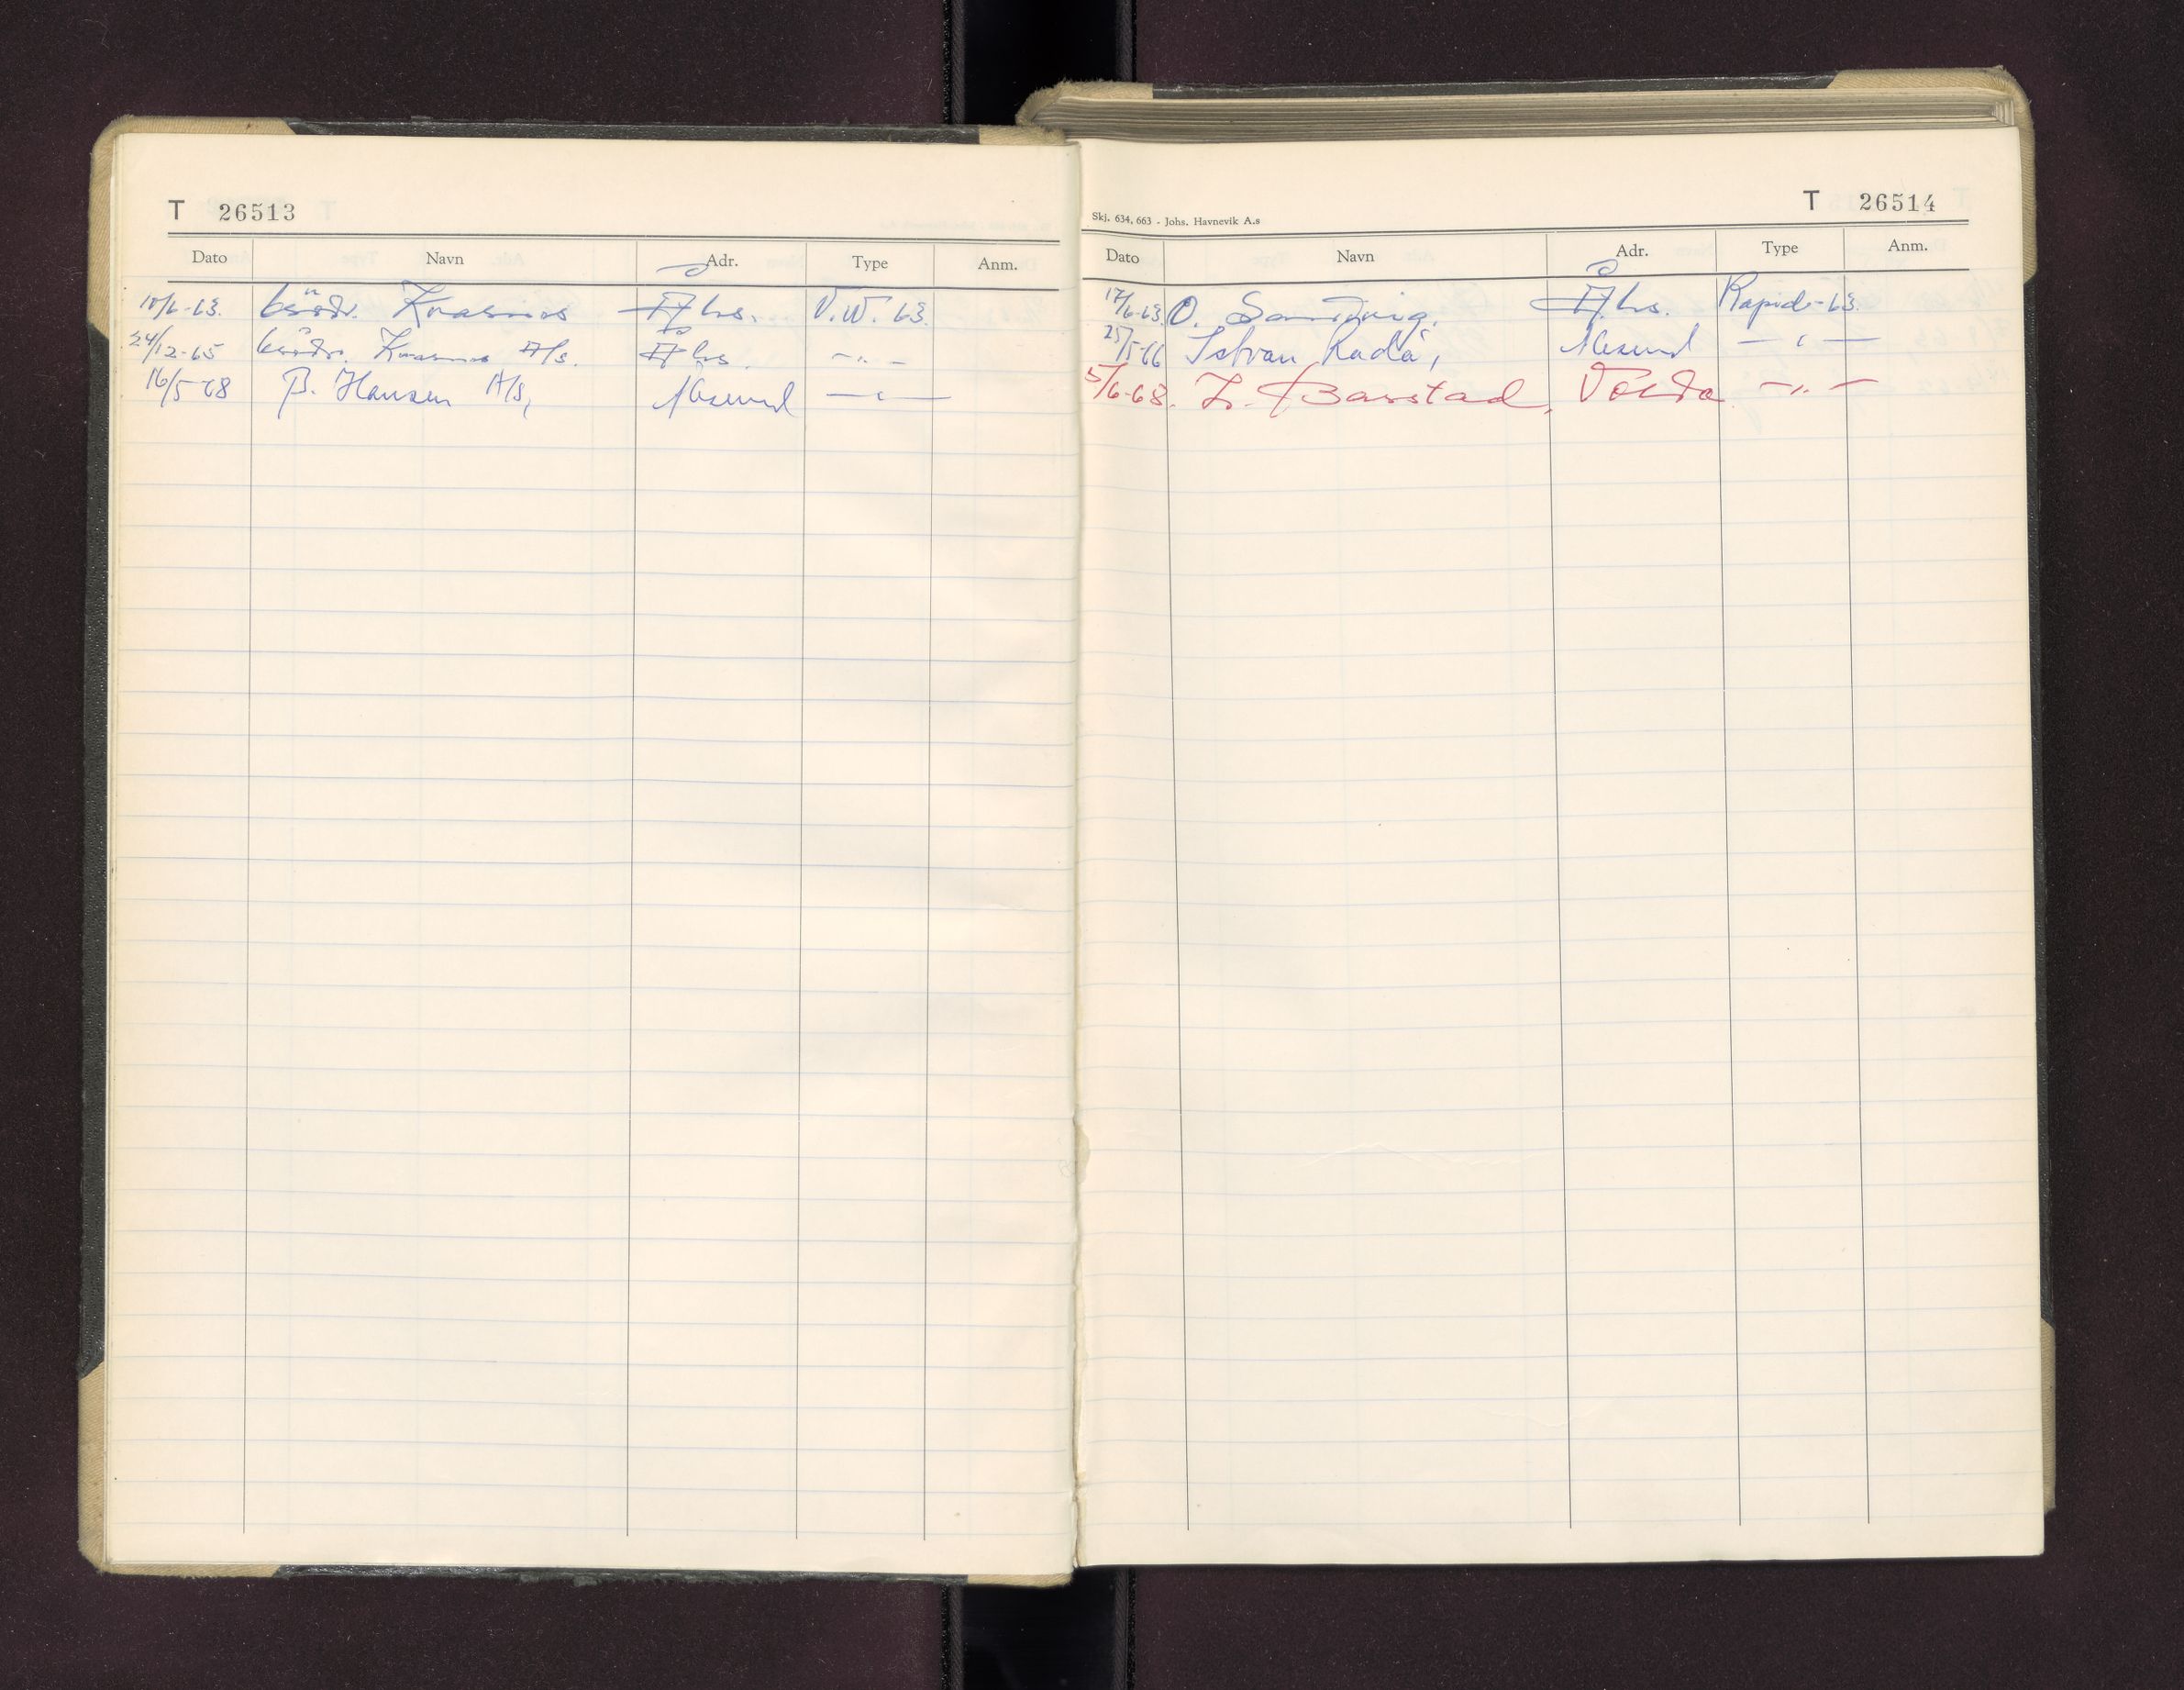 T 26513
Dato Navn Adr. Type Anm.
10/6-63. Brödr. Åhs. V.W. 63.
24/12-65 Brödr. A/s. Åhs. -"-
16/5-68 B. Hansen A/S, Ålesund -"-
Skj. 634, 663 - Johs. Havnevik A.s
T 26514
Dato Navn Adr. Type Anm.
17/6-63. O. Åhs. Rapid-63.
25/5-66 Istvan Rada, Ålesund -"-
5/6-68. Barstad, Volda -"-